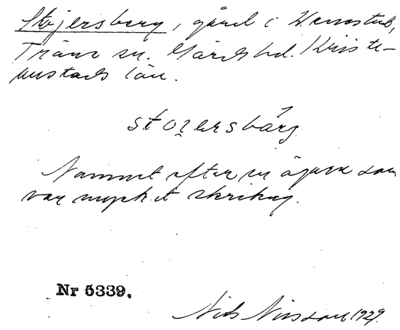 Stojersberg, gård i
Träne sn. Gärds hd. Kristi-
anstads län.
stojersbärg
Namnet efter en ägare som
var mycket skrikig.
Nr 5339.
Nils Nilsson 1929.